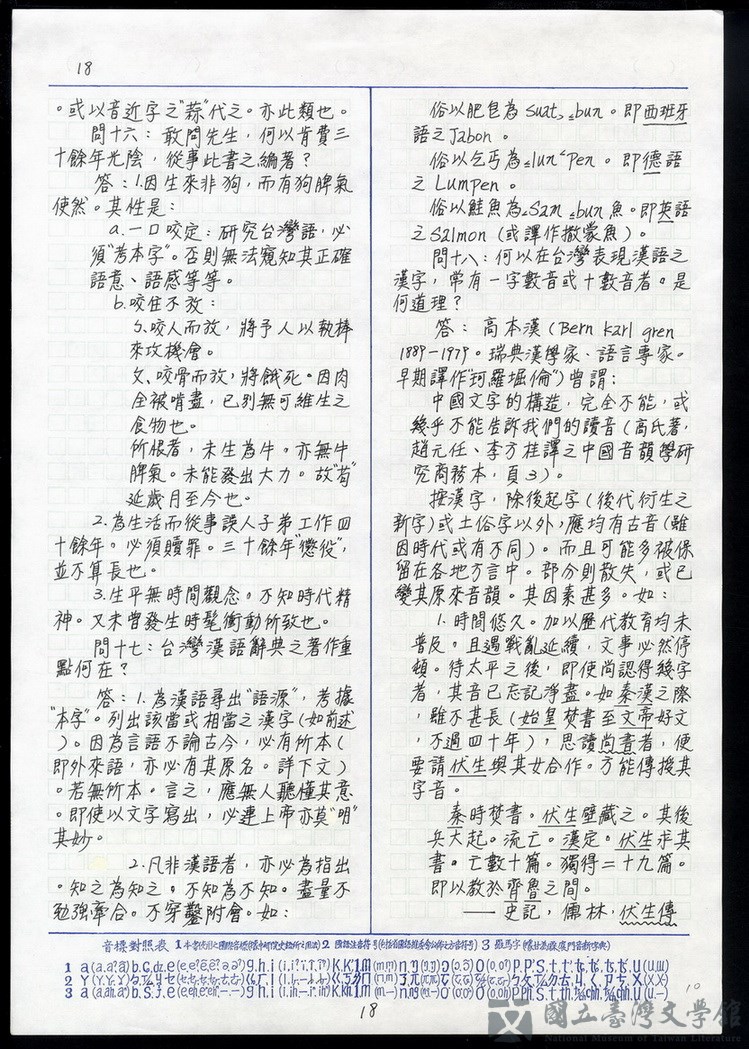 18
。或以音近字之"蒜"代之。亦此類也。
問十六：敢問先生，何以肯費三
十餘年光陰，從事此書之編著？
答：1.因生來非狗，而有狗脾氣
使然。其性是：
a.一口咬定：研究台灣語，必
須"考本字"。否則無法窺知其正確
語意、語感等等。
b.咬住不放：
ㄅ.咬人而放，將予人以執棒
來攻機會。
ㄆ.咬骨而放，將餓死。因肉
全被啃盡，已別無可維生之
食物也。
所恨者，未生為牛。亦無牛
脾氣。未能發出大力。故"苟"
延歲月至今也。
2.為生活而從事誤人子弟工作四
十餘年。必須贖罪。三十餘年"懲役"，
並不算長也。
3.生平無時間觀念。不知時代精
神。又未曾發生時髦衝動所致也。
問十七：台灣漢語辭典之著作重
點何在？
答：1.為漢語尋出"語源"，考據
"本字"。列出該當或相當之漢字(如前述
)。因為言語不論古今，必有所本(
即外來語，亦必有其原名。詳下文)
。若無所本。言之，應無人聽懂其意
。即使以文字寫出，必連上帝亦莫"明"
其妙。
2.凡非漢語者，亦必為指出
。知之為知之。不知為不知。盡量不
勉強牽合。不穿鑿附會。如：
俗以肥皂為suat bun。即西班牙
語之Jabon。
俗以乞丐為lun pen。即德語
之Lumpen。
俗以鮭魚為san bun魚。即英語
之Salmon(或譯作撒蒙魚)。
問十八：何以在台灣表現漢語之
漢字，常有一字數音或十數音者。是
何道理？
答：高本漢(Bern karl gren
1889－1979。瑞典漢學家、語言專家。
早期譯作"珂羅堀倫")曾謂：
中國文字的構造，完全不能，或
幾乎不能告訴我們的讀音(高氏著，
趙元任、李方桂譯之中國音韻學研
究商務本，頁3)。
按漢字，除後起字(後代衍生之
新字)或土俗字以外，應均有古音(雖
因時代或有不同)。而且可能多被保
留在各地方言中。部分則散失，或已
變其原來音韻。其因素甚多。如：
1.時間悠久。加以歷代教育均未
普及。且遇戰亂延續，文事必然停
頓。待太平之後，即使尚認得幾字
者，其音已忘記淨盡。如秦漢之際
，雖不甚長(始皇焚書至文帝好文
，不過四十年)，思讀尚書者，便
要請伏生與其女合作。方能傳授其
字音。
秦時焚書。伏生壁藏之。其後
兵大起。流亡。漢定。伏生求其
書。亡數十篇。獨得二十九篇。
即以教於齊魯之間。
──史記，儒林，伏生傳
音標對照表
18
國立臺灣文學館
National Museum of Taiwan Literature